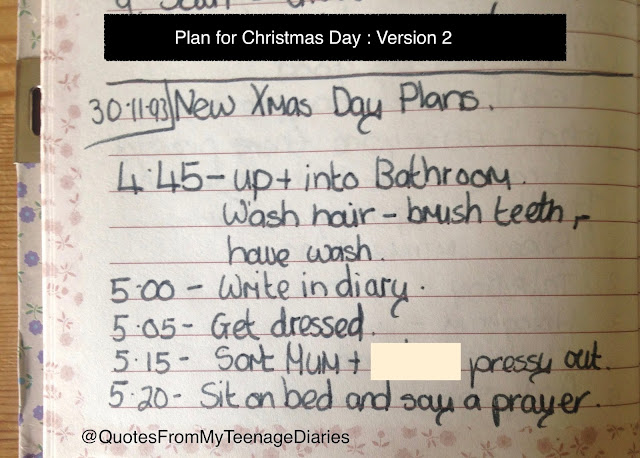 Plan for Christmas Day : Version 2
30·11·93 New Xmas Day Plans.
4·45 - up + into Bathroom.
Wash hair - brush teeth,-
have wash.
5·00 - Write in diary.
5·05 - Get dressed.
5·15 - Sort Mum + pressy out.
5·20 - Sit on bed and say a prayer.
@QuotesFromMyTeenageDiaries